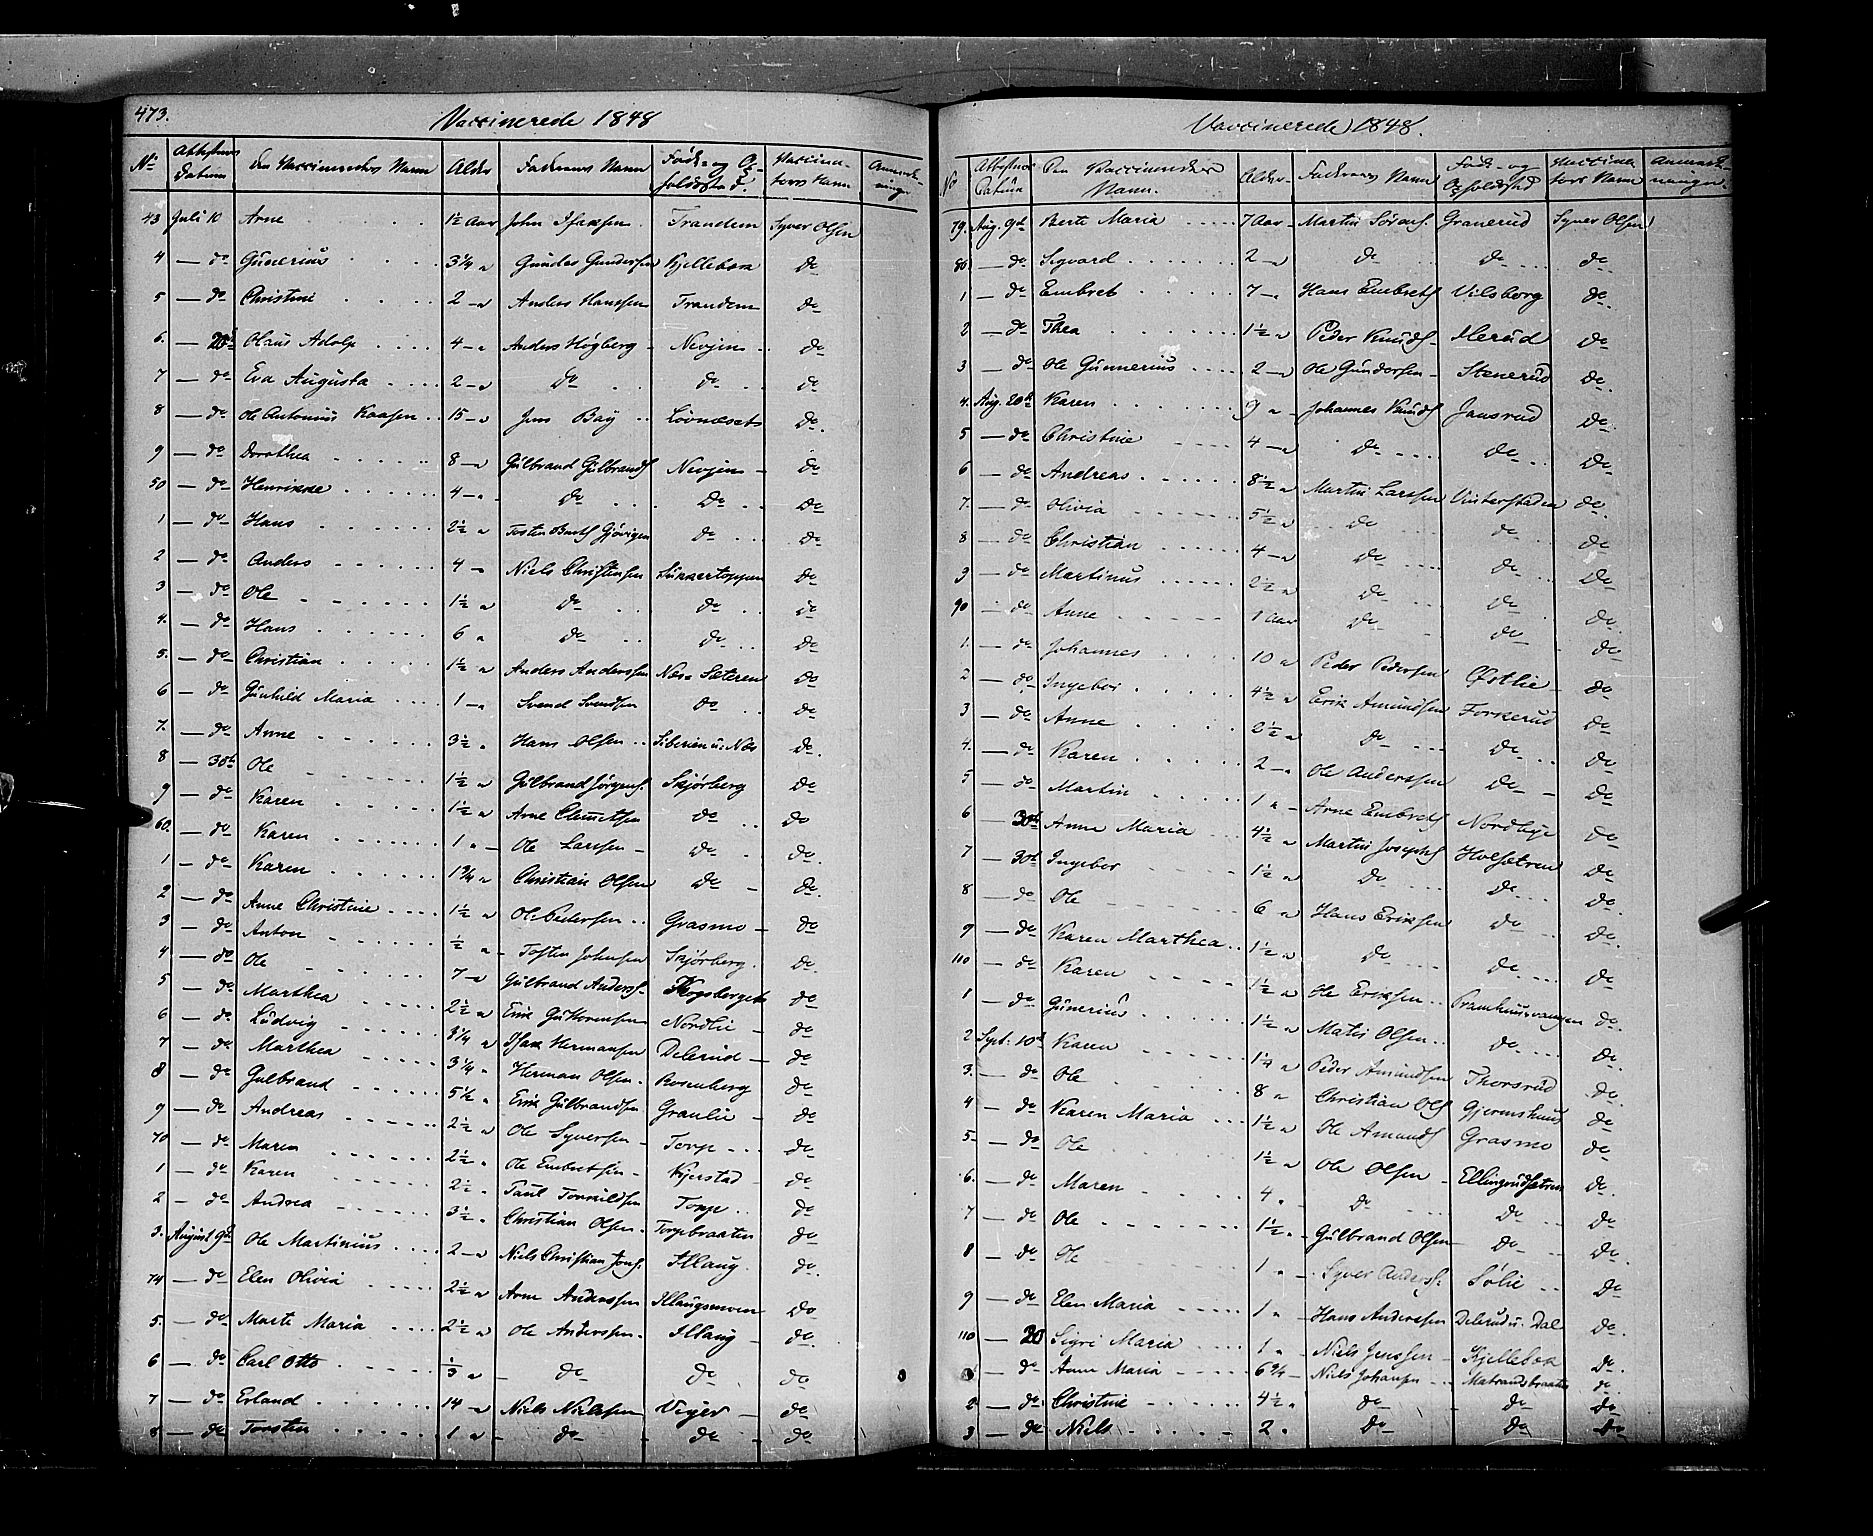 473.
Vaccinerede 1848
No Attestens Datum Den Vaccineredes Navn Alder Faderens Navn Føde- og Opholdssted Vaccinateurs Navn Anmærkninger
43 Juli 10 Arne 1½ Aar John Isaksen Trandem Syver Olsen
4 — do Gunerius 3¼ " Gunder Gundersen Kjellebæk do
5 — do Christine 2 — " Anders Hanssen Trandem do
6. — 20de Olaus Adolp 4 — " Anders Høgberg Nevjen do
7 — do Eva Augusta 2 — " do do do
8 — do Ole Antonius Kaasen 15 — " Jens Bay Lövneset do
9 — do Dorothea 8 — " Gulbrand Gulbrands. Nevjen do
50 — do Henrikke 4 — " do do do
1 — do Hans 2½ " Tosten Gjörigen do do
2 — do Anders 4 — Niels Christensen Sukkertoppen do
3 — do Ole 1½ " do do do
4. — do Hans 6 " do do do
5. — do Christian 1½ " Anders Anderssen Næs-Sæteren do
6 — do Gunhild Maria 1 — " Svend Svendsen do do
7. — do Anne 3½ " Hans Olsen Siberien u. Næs do
8 — 30te Ole 1½ " Gulbrand Jörgens. Skjörberg do
9 — do Karen 1½ " Arne Clemetsen do do
60. — do Karen 1 " Ole Larssen do do
1 — do Karen 1¾ " Christian Olsen do do
2 — do Anne Christine 1½ " Ole Pedersen Grasmo do
3 — do Anton ½ " Tosten Johnsen Skjörberg do
4 — do Ole 7 — " Gulbrand Anderss. do
5 — do Marthea 2½ " Erik Guttormsen Nordlie do
6 — do Ludvig 3¼ " Isak Hermansen Delerud do
7 — do Marthea 3¼ " Herman Olsen Rosenberg do
8 — do Gulbrand 5½ " Erik Gulbrandsen Graulie do
9 — do Andreas 2½ " Ole Syversen Torp do
70 — do Maren 2½ " Ole Embretsen Kjerstad do
1 — do Karen 2½ " Paul Torkildsen Torp do
2 — do Andrea 3½ " Christian Olsen Torpbraaten do
3. August 9de Ole Martinius 2 — " Niels Christian Jons. Illaug do
74 — do Elen Olivia 2½ " Arne Anderssen Illaugsmoen do
5. — do Marte Maria 2½ " Ole Anderssen Illaug do
6 — do Carl Otto ⅓ " do do do
7 — do Erland 14 " Niels Nielssen Viger do
8 — do Torsten 1 " do do do
Vaccinerede 1848.
No Attestens Datum Den Vaccineredes Navn. Alder Faderens Navn Føde- og Opholdsted Vaccinateurs Navn Anmærkninger
79. Aug. 9de Berte Maria 7 Aar Martin Sörens. Granerud Syver Olsen
80. — do Sigvard 2 — " do do do
1 — do Embret 7 — " Hans Embrets Vilsborg do
2 — do Thea 1½ " Peder Knuds. Merud do
3 — do Ole Gunnerius 2 — " Ole Gundersen Stenerud do
4. Aug. 20de Karen 9 " Johannes Knuds Jansrud do
5 — do Christine 4 — " do do do
6 — do Andreas 8½ " Martin Larssen Vinterstaden do
7. — do Olivia 5½ " do do do
8 — do Christian 4 — " do do do
9 — do Martinus 2½ " do do do
90 — do Anne 1 Aar do do do
1. — do Johannes 10 " Peder Pedersen Østlie do
2 — do Ingebor 4½ " Erik Amundsen Forkerud do
3 — do Anne 2½ " do do do
4. — do Karen 2 — " Ole Anderssen do do
5 — do Martin 1 " Arne Embrets Nordbye do
6 — 30te Anne Maria 4½ " Martin Josephs Holsetren do
7 — 30te Ingebor 1½ " do do do
8 — do Ole 6 " Hans Eriksen do do
9 — do Karen Marthea 1½ " do do do
110 — do Karen 1½ " Ole Eriksen Pramhuusvangen do
1 — do Gunerius 1½ " Matis Olsen do do
2 Sept. 10de Karen 1¼ " Peder Amundsen Thorsrud do
3. — do Ole 8 " Christian Ols Gjermshuus do
4 — do Karen Maria 1½ " Ole Amunds Grasmo do
5 — do Ole 1½ " Ole Olsen Ellingrudsetren do
6. — do Maren 4 " do do do
7 — do Ole 1½ " Gulbrand Olsen do do
8 — do Ole 1 " Syver Anderss. Sölie do
9 — do Elen Maria 1 " Hans Anderssen Delerud u. Dal do
110 — 20 Sigri Maria 1 " Niels Jenssen Kjellebæk do
— do Anne Maria 6¾ Niels Johansen Matrandbraaten do
2 — do Christine 4½ " do do do
3 — do Niels 2 " do do do